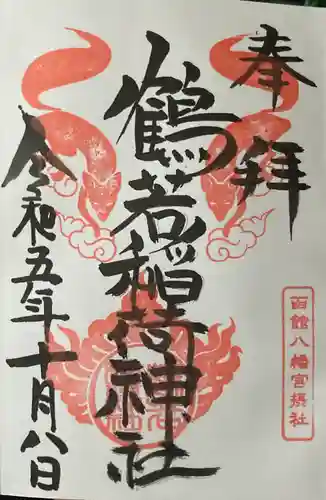 奉拝
鶴若稲荷神社
令和五年十月八日
函館八幡宮摂社